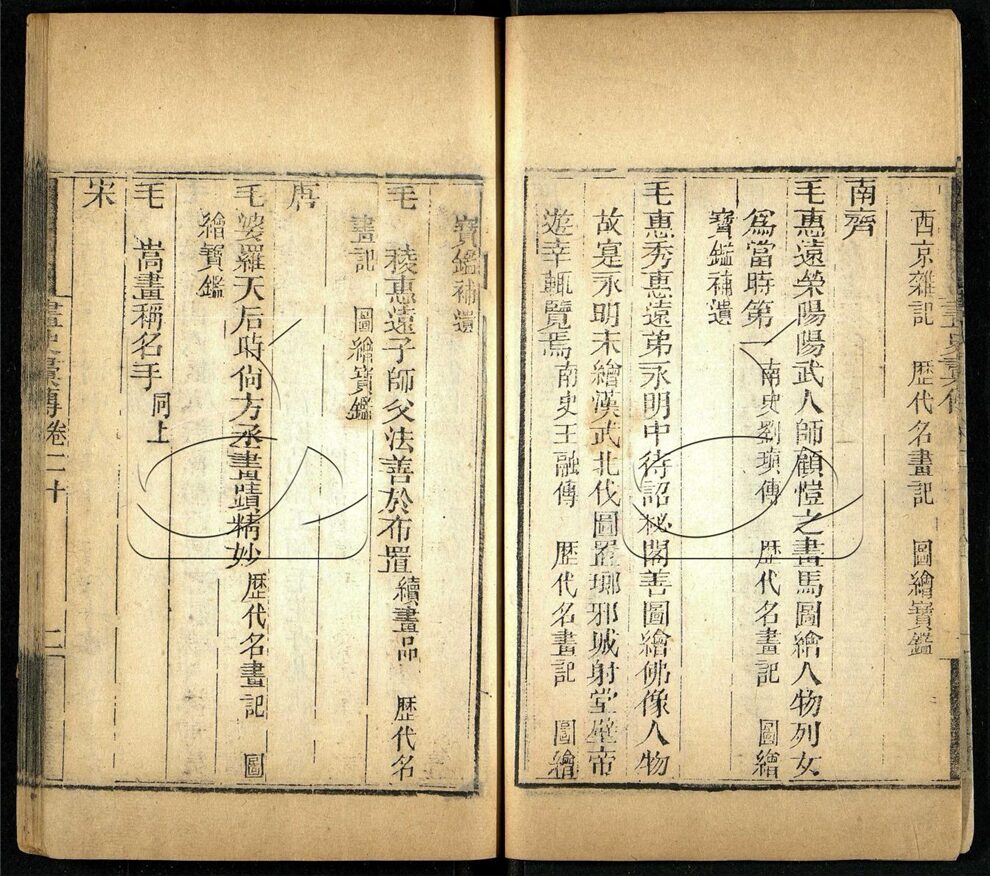 西京雜記　歷代名畫記　圖繪寶鑑
南齊
毛惠遠滎陽陽武人師顧愷之畫馬圖繪人物列女
爲當時第一　南史劉瑱傳　歷代名畫記　圖繪
寶鑑補遺
毛惠秀惠遠弟永明中待詔秘閣善圖繪佛像人物
故寔永明末繪漢武北伐圖置瑯邪城射堂壁帝
遊幸輒覽焉南史王融傳　歷代名畫記　圖繪
寶鑑補遺
毛　稜惠遠子師父法善於布置續畫品　歷代名
畫記　圖繪寶鑑
唐
毛婆羅天后時尙方丞畫蹟精妙歷代名畫記　圖
繪寶鑑
毛　嵩畫稱名手同上
宋
畫史彙傳卷二十　二